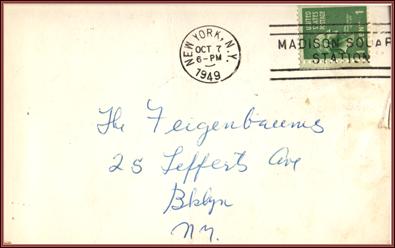 NEW YORK, N.Y.
OCT 7
6-PM
1949
MADISON SQUAR
STATION
UNITED STATES
1
The Feigenbaums
25 Lefferts Ave
Bklyn
N.Y.